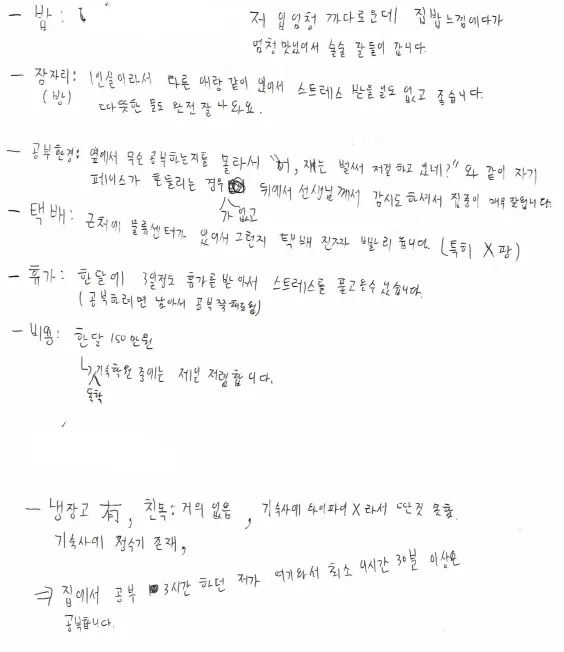 - 밥 : 저 입 엄청 까다로운데 집밥느낌에다가
엄청 맛있어서 술술 잘 들어 갑니다.
- 잠자리: 1인실이라서 다른 애랑 같이 있어서 스트레스 받을 일도 없고 좋습니다.
(방) 따뜻한 물도 완전 잘 나와요.
- 공부환경: 옆에서 무슨 공부하는지를 몰라서 "어, 쟤는 벌써 저걸 하고 있네?" 와 같이 자기
페이스가 흔들리는 경우가 없고 뒤에서 선생님께서 감시도 하셔서 집중이 매우 잘됩니다.
- 택배: 근처에 물류센터가 있어서 그런지 택배 진짜 빨리 옵니다. (특히 X팡)
- 휴가: 한달에 3일정도 휴가를 받아서 스트레스를 풀고 올 수 있습니다.
(공부하려면 남아서 공부 쭉 해도됨)
- 비용: 한달 150만원
↳ 독학기숙학원 중에는 제일 저렴합니다.
- 냉장고 有, 친목: 거의 없음, 기숙사에 와이파이X라서 딴짓 못함.
기숙사에 정수기 존재,
⇒ 집에서 공부 3시간 하던 제가 여기와서 최소 9시간 30분 이상은
공부합니다.